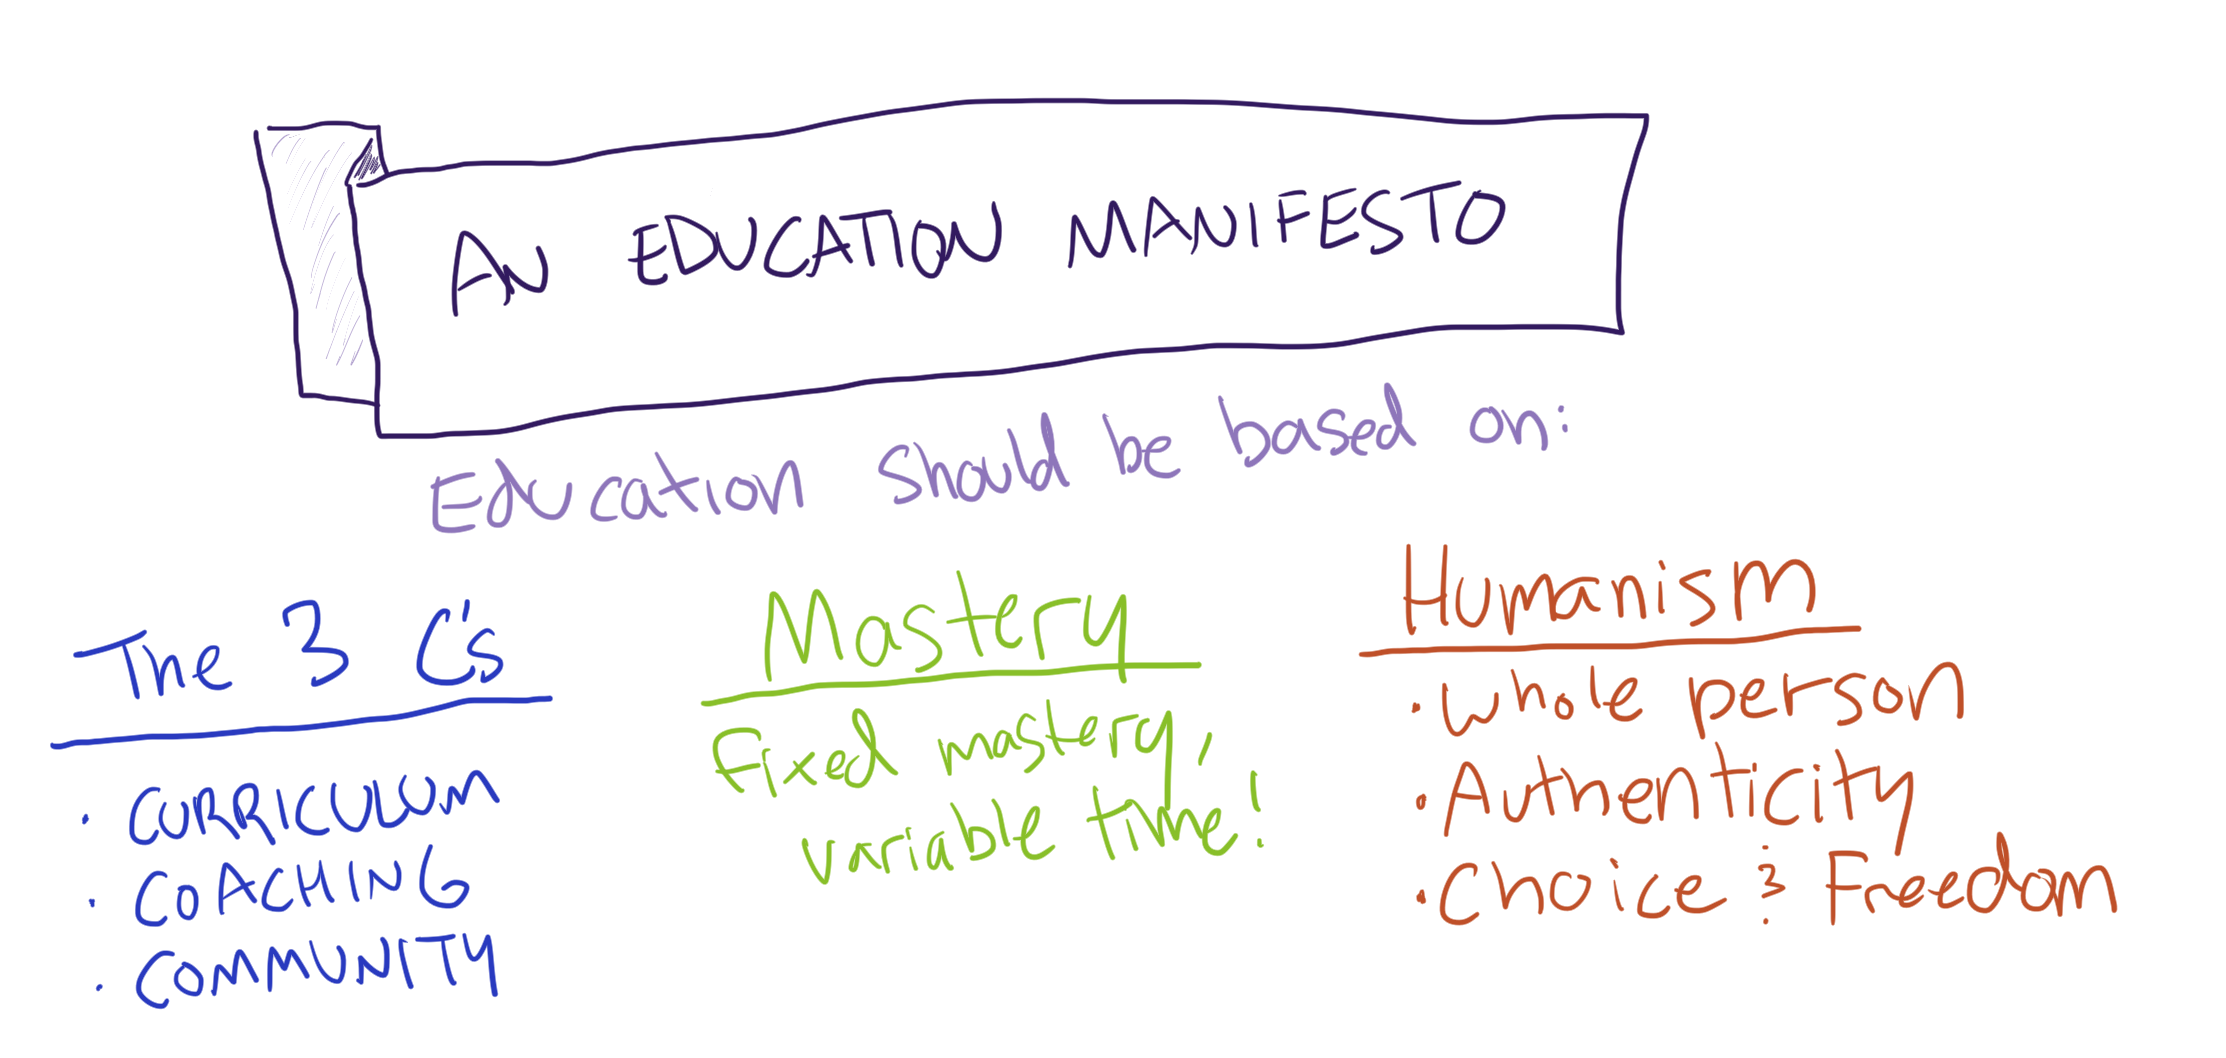 AN EDUCATION MANIFESTO
Education should be based on:
The 3 C's
· CURRICULUM
· COACHING
· COMMUNITY
Mastery
Fixed mastery,
variable time!
Humanism
· Whole person
· Authenticity
· Choice & Freedom